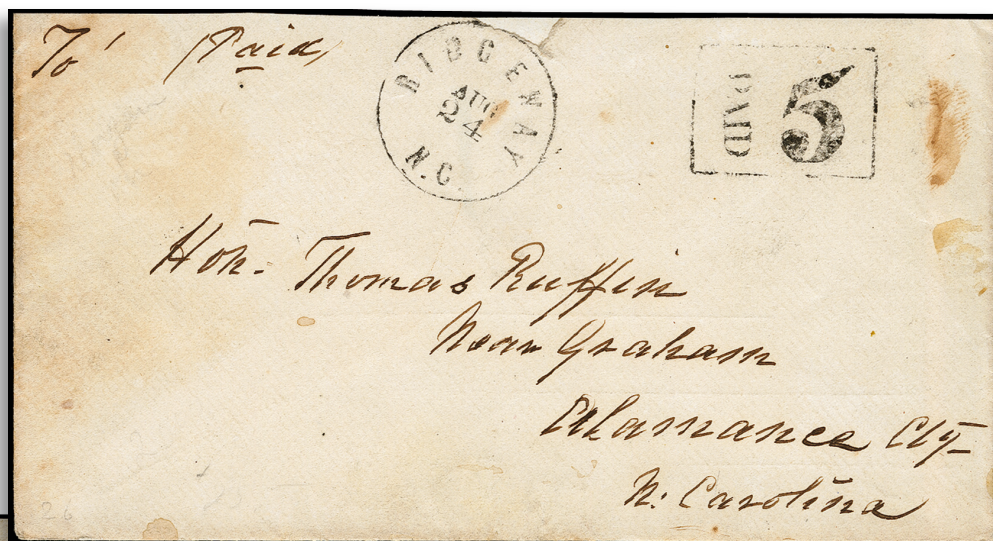 To Paid
RIDGEWAY
AUG
24
N.C.
PAID 5
Hon. Thomas Ruffin
Near Graham
Alamance Cty
N. Carolina
26